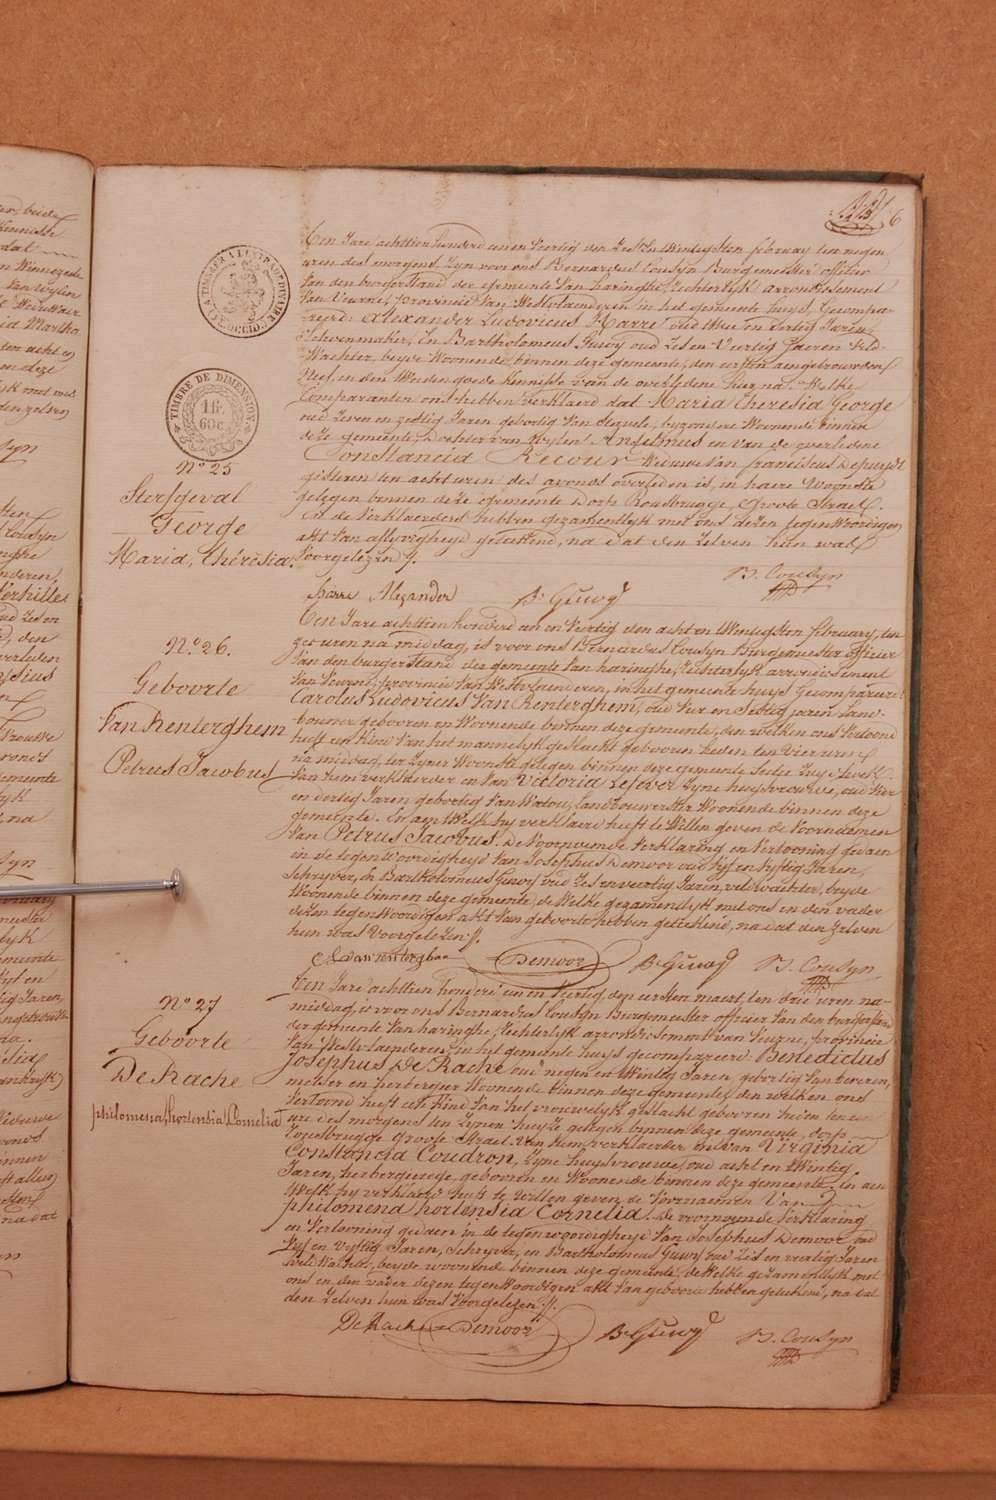 6
TIMBRE A L'EXTRAORDINAIRE
FL. OCCID.
TIMBRE DE DIMENSION
1 fr. 60 c.
Een Jare achttien honderd een en veertig den zes en Twintigsten february ten negen
uren des morgens, Zyn voor ons Bernardus Cousyn Burgemeester officier
Van den burgerstand der gemeente Van haringhe, Rechterlyk arrondissement
Van Veurne, provincie Van Westvlaenderen in het gemeente huys, Gecompa-
reerd: Alexander Ludovicus Harre oud twee en dertig Jaren
Schoenmaker, en Bartholomeus Guwy oud Zes en Veertig Jaeren Veld-
Wachter, beyde Woonende binnen deze gemeente, den eersten aengetrouwden
Neef en den tweeden goede kennisse van de overledene hier na. Welke
Comparanten ons hebben Verklaerd dat Maria Theresia George
oud zeven en zestig Jaren gebortig Van Stavele, byzondere Woonende binnen
deze gemeente, Dochter van wylen Anselmus en van de overledene
Constancia Recour Weduwe Van franciscus Depuydt
gisteren ten acht uren des avonds overleden is, in haere Woonste
gelegen binnen deze gemeente Dorp Rousbrugge Groote Straet.
En de Verklaerders hebben gezamentlyk met ons dezen tegenwoordigen
akt Van aflyvigheyd geteekend, na dat den Zelven hun was
Voorgelezen //.
N.º 25
Sterfgeval
George
Maria, Theresia.
Harre Alexander B. Guwy B. Cousyn
Een Jare achttien honderd een en Veertig den acht en Twintigsten february, ten
zes uren na middag, is voor ons Bernardus Cousyn Burgemeester officier
Van den burgerstand der gemeente Van haringhe, Rechterlyk arrondissement
Van Veurne, provincie Van Westvlaenderen, in het gemeente huys Gecompareerd:
Carolus Ludovicus Van Renterghem, oud Vier en dertig jaren Land-
bouwer gebooren en Woonende binnen deze gemeente, den welken ons Vertoond
heeft een Kind Van het mannelyk geslacht gebooren heden ten Vier uren
na middag, ter Zyner Woonste gelegen binnen deze gemeente
Van hem verklaerder en Van Victoria Lefever Zyne huysvrouwe, oud Vier
en dertig Jaren gebortig Van Watou, Landbouwerster Woonende binnen deze
gemeente. En aen Welk hy verklaerd heeft te Willen geven de Voornamen
Van Petrus Jacobus. De Voornoemde Verklaring en Vertooning gedaen
in de tegenwoordigheyd Van Josephus Demoor oud Vyf en Vyftig Jaren,
Schryver, en Bartholomeus Guwy oud Zes en veertig Jaren, veldwachter, beyde
Woonende binnen deze gemeente, de Welke gezamentlyk met ons en den vader
dezen tegenwoordigen akt Van geboorte hebben geteekend, na dat den Zelven
hun was Voorgelezen //.
N.º 26.
Geboorte
Van Renterghem
Petrus Jacobus
Demoor B. Guwy B. Cousyn
Een Jare achttien honderd een en Veertig, den eersten maert, ten drie uren na-
middag, is voor ons Bernardus Cousyn Burgemeester officier Van den burgerstand
der gemeente Van haringhe, Rechterlyk arrondissement van Veurne, provincie
Van Westvlaenderen, in het gemeente huys gecompareerd: Benedictus
Josephus De Rache oud negen en twintig Jaren, gebortig Van
metser en herbergier Woonende binnen deze gemeente, den welken ons
Vertoond heeft een Kind Van het vrouwelyk geslacht gebooren heden ten
ure des morgens ten Zynen huyze gelegen binnen deze gemeente, dorp
Rousbrugge groote Straet. Van hem verklaerder en van Virginia
Constancia Coudron, Zyne huysvrouwe, oud acht en twintig
Jaren, herbergierege, gebooren en Woonende binnen deze gemeente, en aen
Welk hy verklaerd heeft te Willen geven de Voornamen Van
philomena hortensia Cornelia. De voornoemde Verklaring
en Vertooning gedaen in de tegenwoordigheyd Van Josephus Demoor oud
Vyf en Vyftig Jaren, Schryver, en Bartholomeus Guwy oud Zes en veertig Jaren
veld Wachter, beyde woonende binnen deze gemeente, de Welke gezamentlyk met
ons en den vader dezen tegenwoordigen akt Van geboorte hebben geteekend, na dat
den Zelven hun was Voorgelezen //.
N.º 27
Geboorte
De Rache
philomena, hortensia, Cornelia
De Rache Demoor B. Guwy B. Cousyn